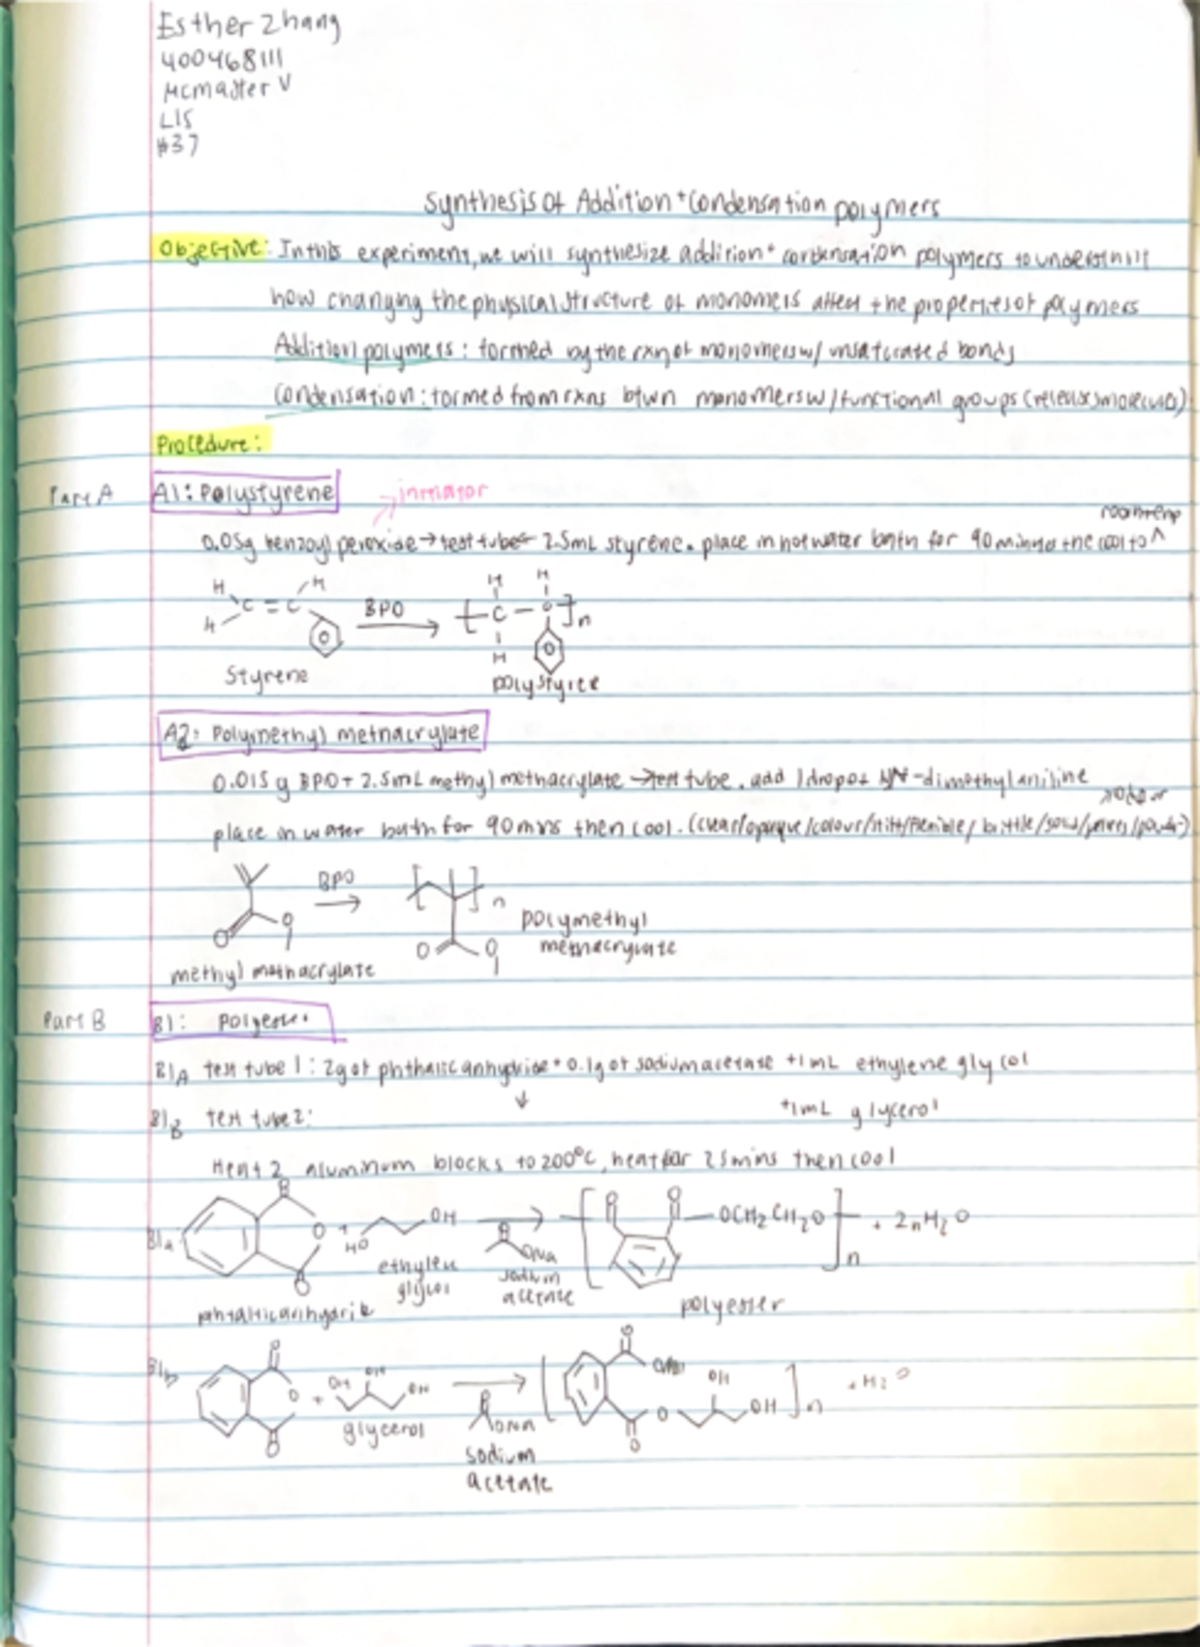 Esther Zhang
400468111
McMaster V
L15
#37
Synthesis of Addition + Condensation polymers
Objective: In this experiment, we will synthesize addition + condensation polymers to
how changing the physical structure of monomers affect the properties of polymers
Addition polymers: formed by the rxn of monomers w/ unsaturated bonds
Condensation: formed from rxns btwn monomers w/ functional groups
Procedure:
Part A
A1: Polystyrene
initiator
room temp
0.05g benzoyl peroxide → test tube ← 2.5mL styrene. place in hot water bath for 90 mins the cool to ^
H H
C = C
H
BPO
H H
[ C - C ]n
H
Styrene
A2: Polymethyl methacrylate
0.015 g BPO + 2.5mL methyl methacrylate → test tube. add 1 drop of N,N-dimethylaniline
place in water bath for 90 mins then cool. (clear/opaque/colour/stiff/flexible/ brittle/
BPO
O O
[ ]n
O O
polymethyl
methacrylate
methyl methacrylate
Part B
B1: Polyester
B1A test tube 1: 2g of phthalic anhydride + 0.1g of sodium acetate + 1mL ethylene glycol
↓
B1B test tube 2:
+1mL glycerol
Heat 2 aluminum blocks to 200°C, heat for 25mins then cool
B1A
O O O
+
HO OH
ethylene
glycol
O ONa
sodium
acetate
[ O O OCH2CH2O ]n + 2nH2O
polyester
B1b
O O O
+
OH OH OH
glycerol
O ONa
sodium
acetate
[ O O O OH OH ]n + H2O